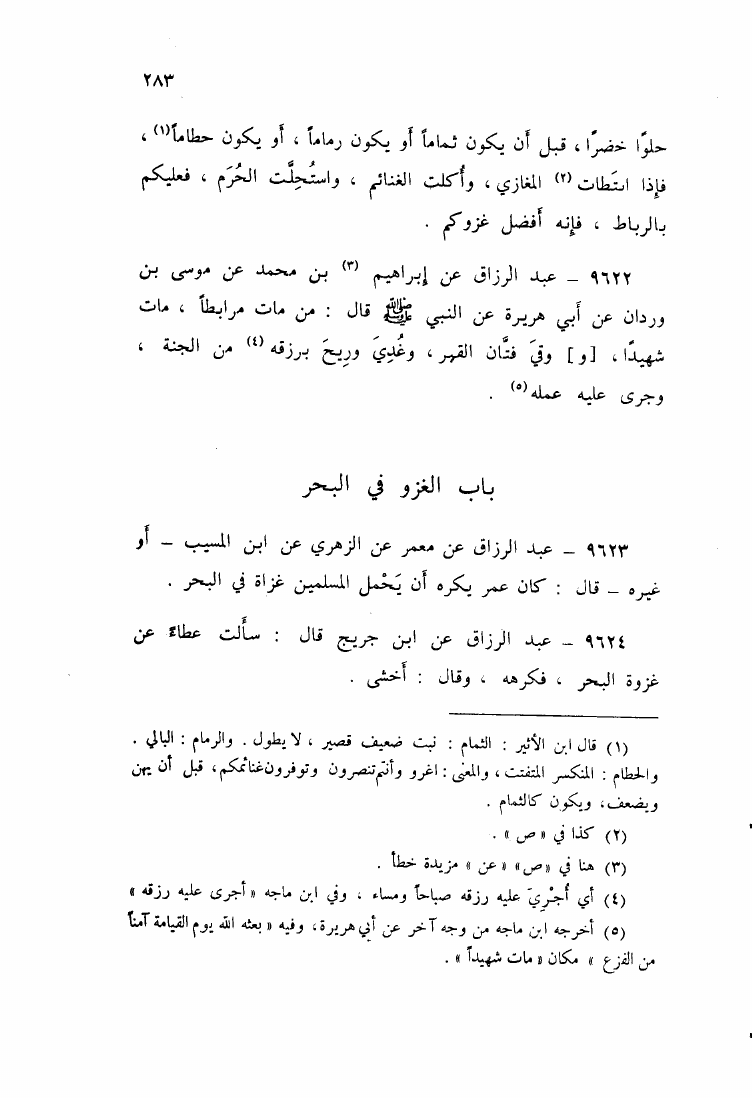 ٢٨٣
حلوًا خضرًا ، قبل أن يكون ثماماً أو يكون رماماً ، أو يكون حطاماً(١) ،
فإذا انتطات (٢) المغازي ، وأُكلت الغنائم ، واستُحِلَّت الحُرَم ، فعليكم
بالرباط ، فإنه أفضل غزوكم .
٩٦٢٢ – عبد الرزاق عن إبراهيم (٣) بن محمد عن موسى بن
وردان عن أبي هريرة عن النبي ﷺ قال : من مات مرابطاً ، مات
شهيدًا ، [ و ] وقيَ فتَّان القهر ، وغُدِيَ ورِيحَ برزقه (٤) من الجنة ،
وجرى عليه عمله (٥) .
باب الغزو في البحر
٩٦٢٣ – عبد الرزاق عن معمر عن الزهري عن ابن المسيب – أو
غيره – قال : كان عمر يكره أن يَحْمل المسلمين غزاة في البحر .
٩٦٢٤ – عبد الرزاق عن ابن جريج قال : سألت عطاءً عن
غزوة البحر ، فكرهه ، وقال : أخشى .
(١) قال ابن الأثير : الثمام : نبت ضعيف قصير ، لا يطول . والرمام : البالي .
والحطام : المنكسر المتفتت ، والمعنى : اغرو وأنتم تنصرون وتوفرون غنائمكم ، قبل أن يهن
ويضعف ، ويكون كالثمام .
(٢) كذا في « ص » .
(٣) هنا في «ص» « عن » مزيدة خطأ .
(٤) أي أُجْرِيَ عليه رزقه صباحاً ومساء ، وفي ابن ماجه «أجرى عليه رزقه »
(٥) أخرجه ابن ماجه من وجه آخر عن أبي هريرة ، وفيه « بعثه الله يوم القيامة آمناً
من الفزع » مكان « مات شهيداً » .